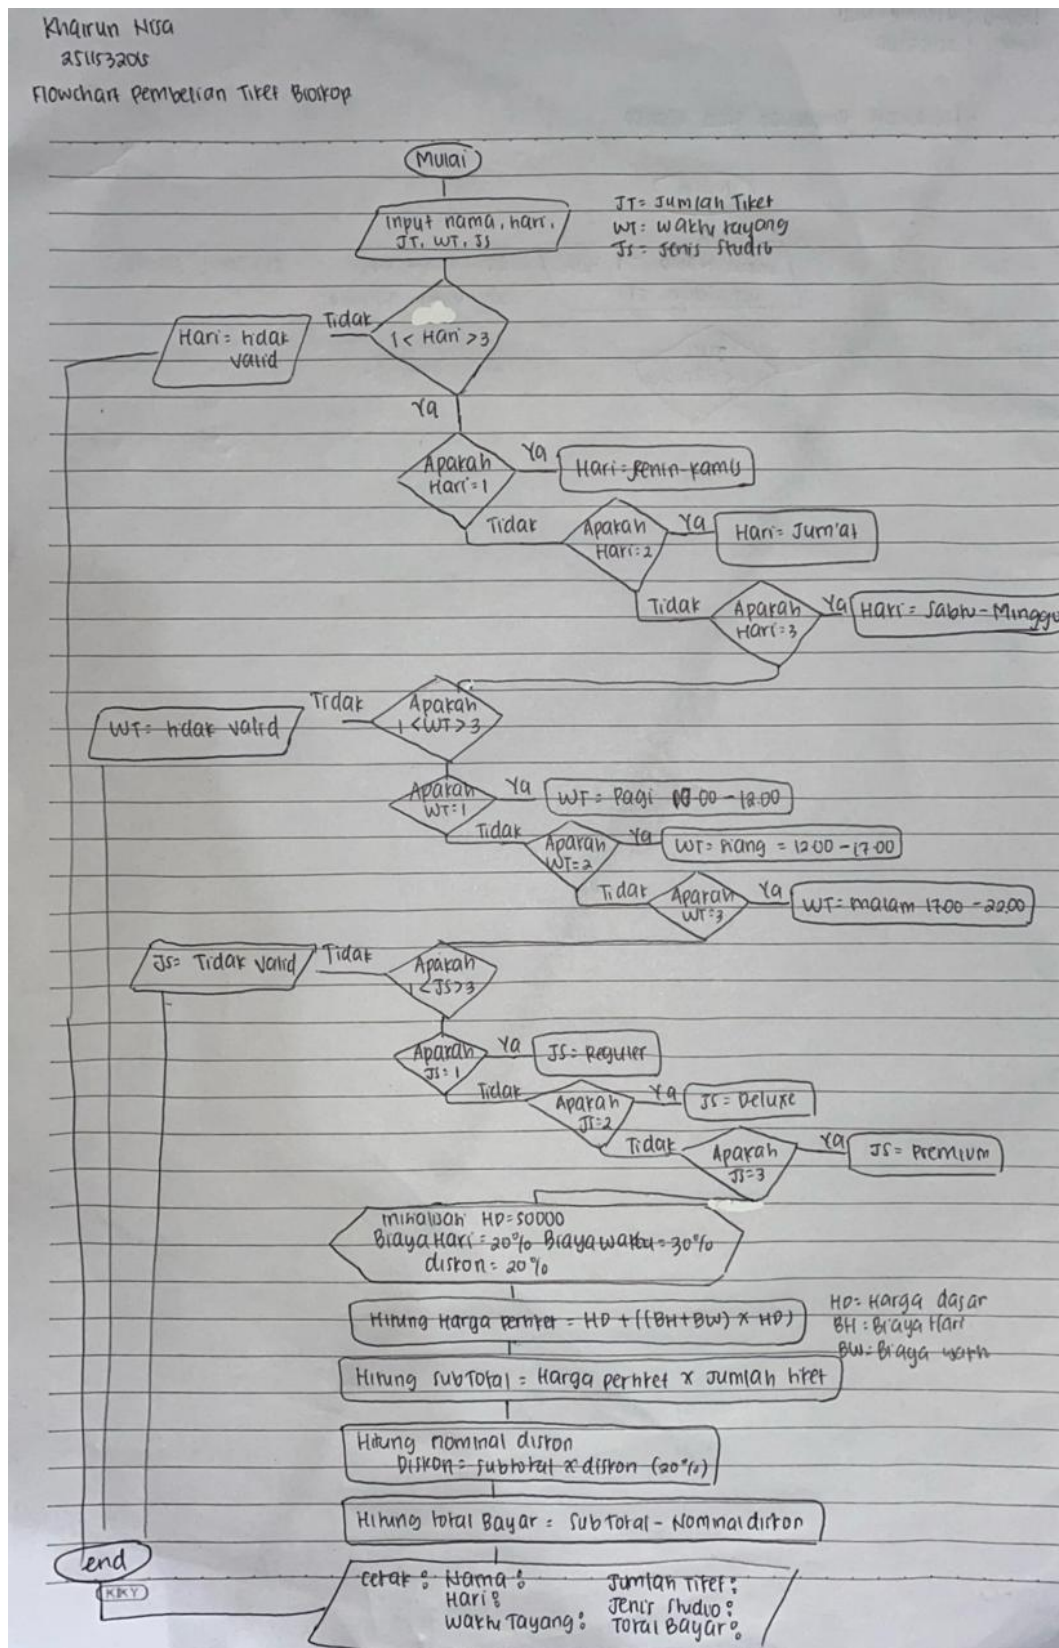 Khairun Nisa
Flowchart Pembelian Tiket Bioskop
Mulai
Input nama, hari,
JT, WT, JS
JT = Jumlah Tiket
WT = Waktu tayang
JS = Jenis Studio
1 < Hari > 3
Tidak
Hari = tidak
valid
Ya
Apakah
Hari = 1
Ya
Hari = Senin - Kamis
Tidak
Apakah
Hari = 2
Ya
Hari = Jum'at
Tidak
Apakah
Hari = 3
Ya
Hari = Sabtu - Minggu
Apakah
1 < WT > 3
Tidak
WT = tidak valid
Apakah
WT = 1
Ya
WT = Pagi 00 - 12.00
Tidak
Apakah
WT = 2
Ya
WT = Siang = 12.00 - 17.00
Tidak
Apakah
WT = 3
Ya
WT = malam 17.00 - 22.00
Apakah
1 < JS > 3
Tidak
JS = Tidak Valid
Apakah
JS = 1
Ya
JS = Reguler
Tidak
Apakah
JS = 2
Ya
JS = Deluxe
Tidak
Apakah
JS = 3
Ya
JS = Premium
HD = 50000
Biaya Hari = 20% Biaya waktu = 30%
diskon = 20%
Hitung Harga pertiket = HD + ((BH + BW) x HD)
HD = Harga dasar
BH = Biaya Hari
BW = Biaya
Hitung subTotal = Harga pertiket x Jumlah tiket
Hitung nominal diskon
Diskon = subtotal x diskon (20%)
Hitung total Bayar = SubTotal - Nominal diskon
Cetak : Nama : Jumlah Tiket :
Hari : Jenis Studio :
Waktu Tayang : Total Bayar :
end